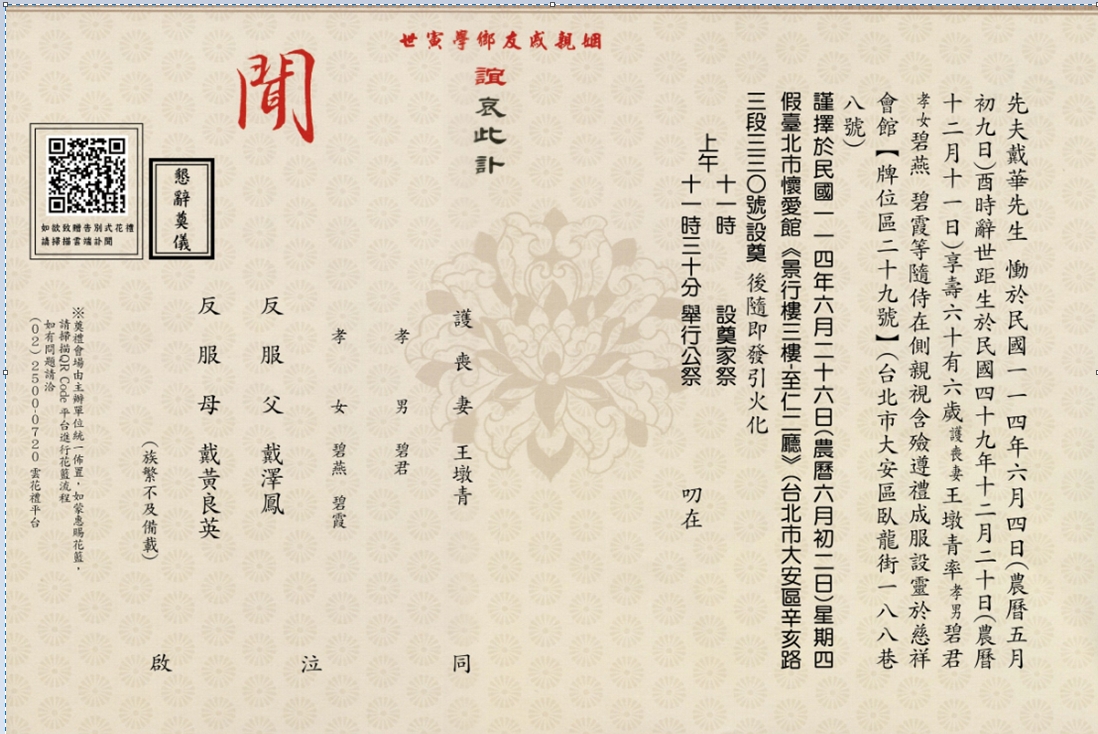 先夫戴華先生 慟於民國一一四年六月四日(農曆五月
初九日)酉時辭世距生於民國四十九年十二月二十日(農曆
十二月十一日)享壽六十有六歲護喪妻王墩青率孝男碧君
孝女碧燕 碧霞等隨侍在側親視含殮遵禮成服設靈於慈祥
會館【牌位區二十九號】(台北市大安區臥龍街一八八巷
八號)
謹擇於民國一一四年六月二十六日(農曆六月初二日)星期四
假臺北市懷愛館《景行樓三樓-至仁二廳》(台北市大安區辛亥路
三段三三〇號)設奠 後隨即發引火化
上午
十一時 設奠家祭
十一時三十分 舉行公祭
叨在
姻親戚友鄉學寅世
誼
哀此訃
聞
護喪妻 王墩青
孝男 碧君
孝女 碧燕 碧霞
反服父 戴澤鳳
反服母 戴黃良英
(族繁不及備載)
同
泣
啟
懇辭奠儀
如欲致贈告別式花禮
請掃描雲端訃聞
※奠禮會場由主辦單位統一佈置,如蒙惠賜花籃,
請掃描QR Code 平台進行花籃流程
如有問題請洽
(02)2500-0720 雲花禮平台